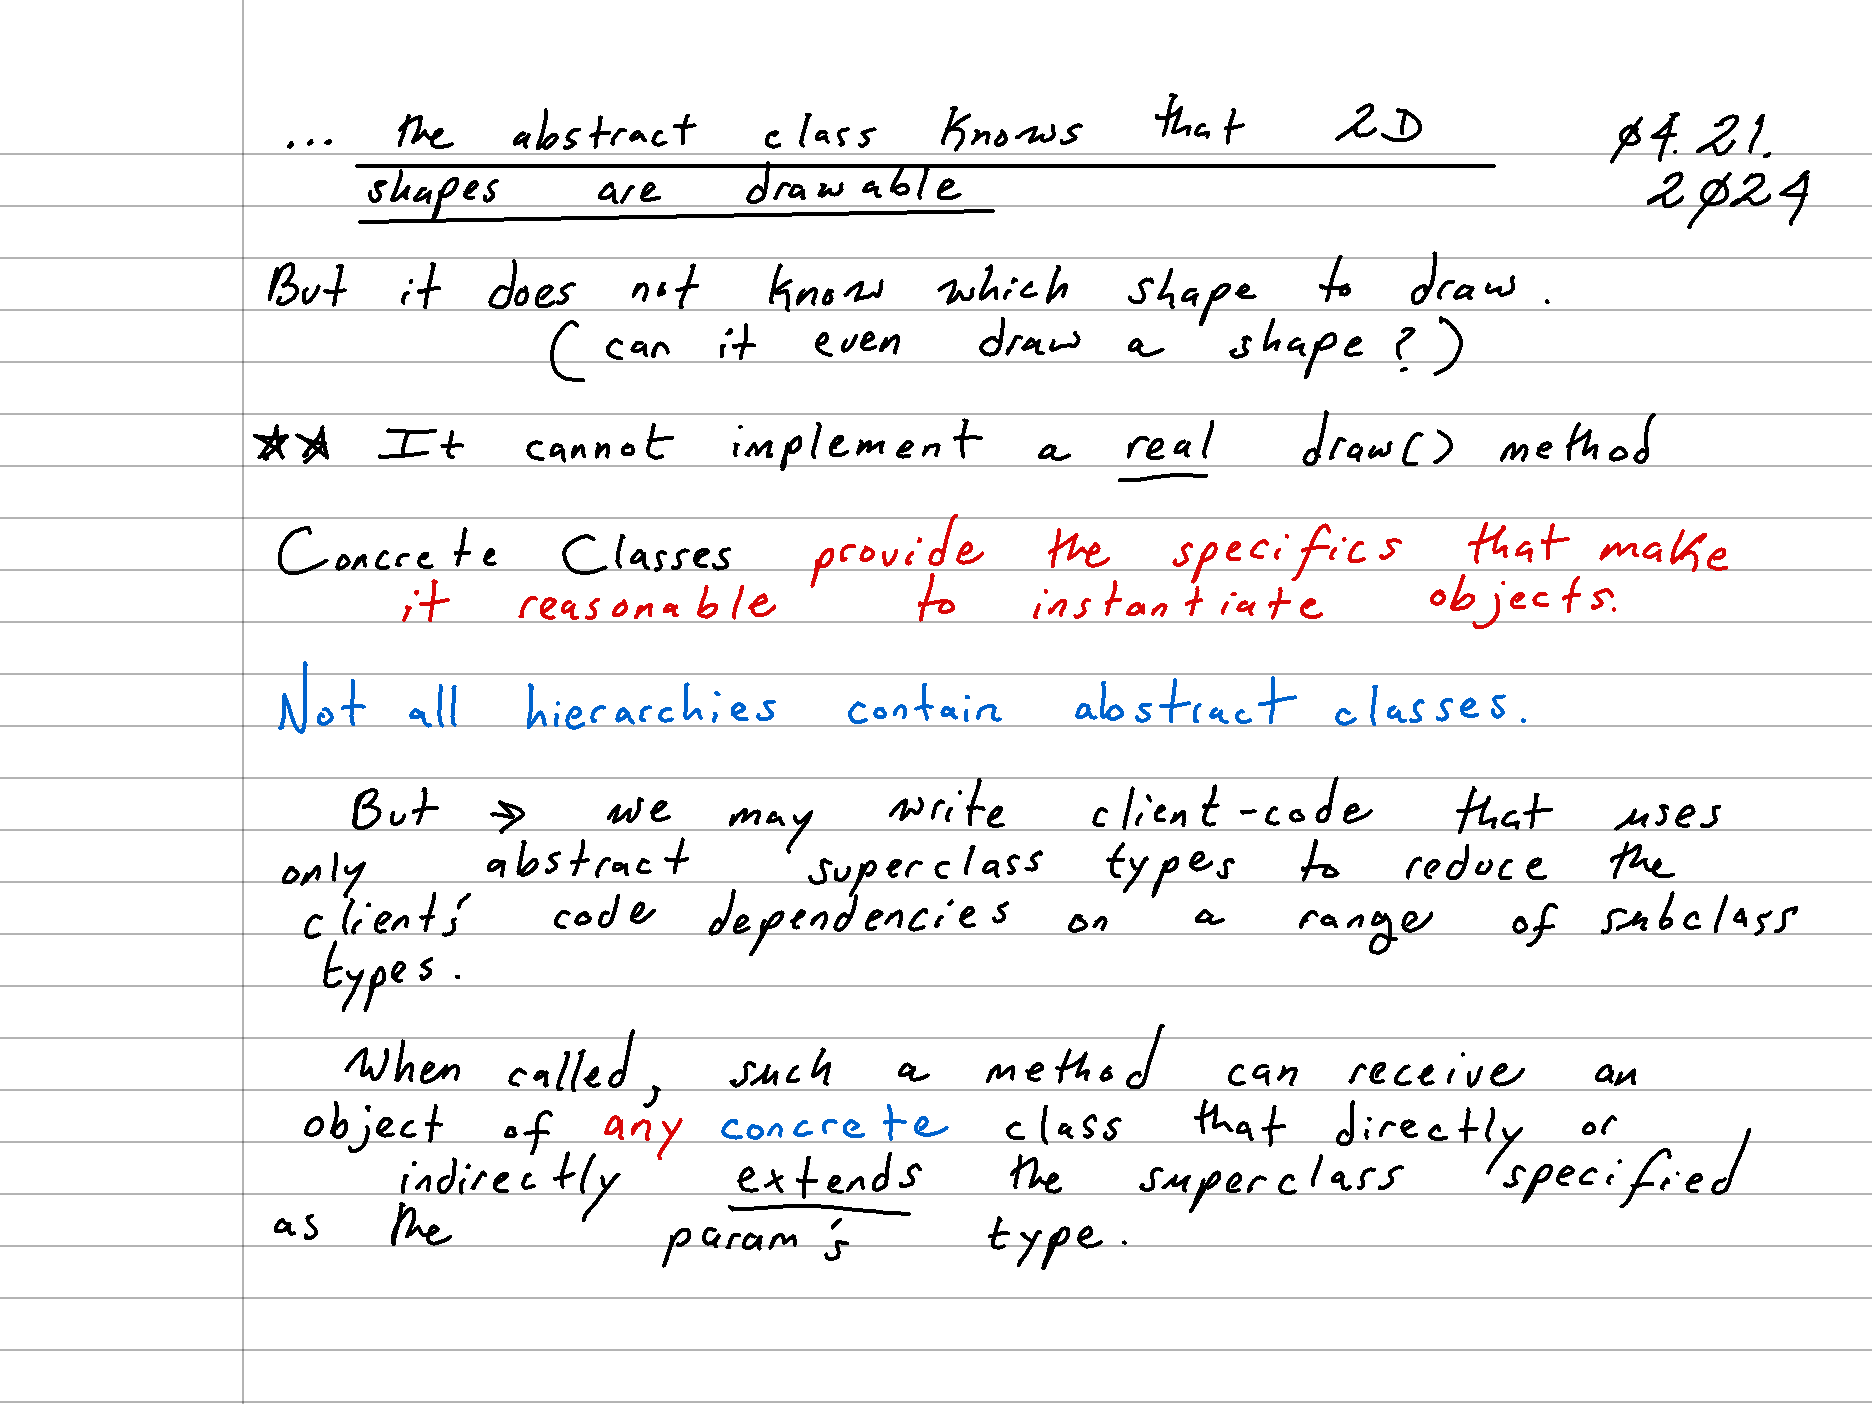 ... the abstract class knows that 2D
shapes are drawable
Ø4.21.
2Ø24
But it does not know which shape to draw.
(can it even draw a shape?)
★★ It cannot implement a real draw() method
Concrete Classes provide the specifics that make
it reasonable to instantiate objects.
Not all hierarchies contain abstract classes.
But → we may write client-code that uses
only abstract superclass types to reduce the
client's code dependencies on a range of subclass
types.
When called, such a method can receive an
object of any concrete class that directly or
indirectly extends the superclass specified
as the param's type.